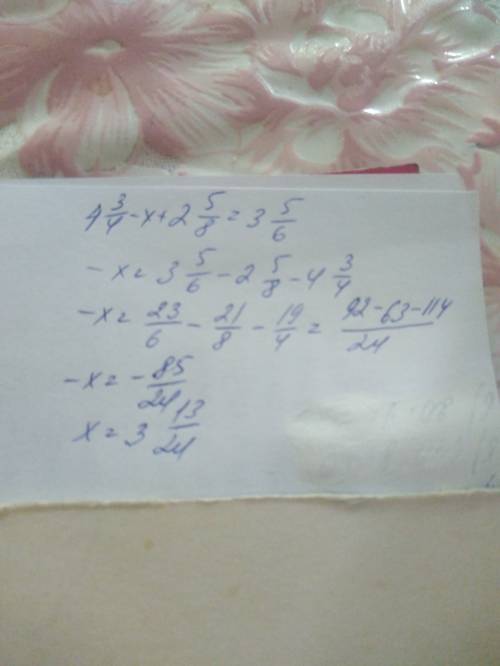 4 3/4 - x + 2 5/8 = 3 5/6
- x = 3 5/6 - 2 5/8 - 4 3/4
- x = 23/6 - 21/8 - 19/4 = (92 - 63 - 114)/24
- x = - 85/24
x = 3 13/24